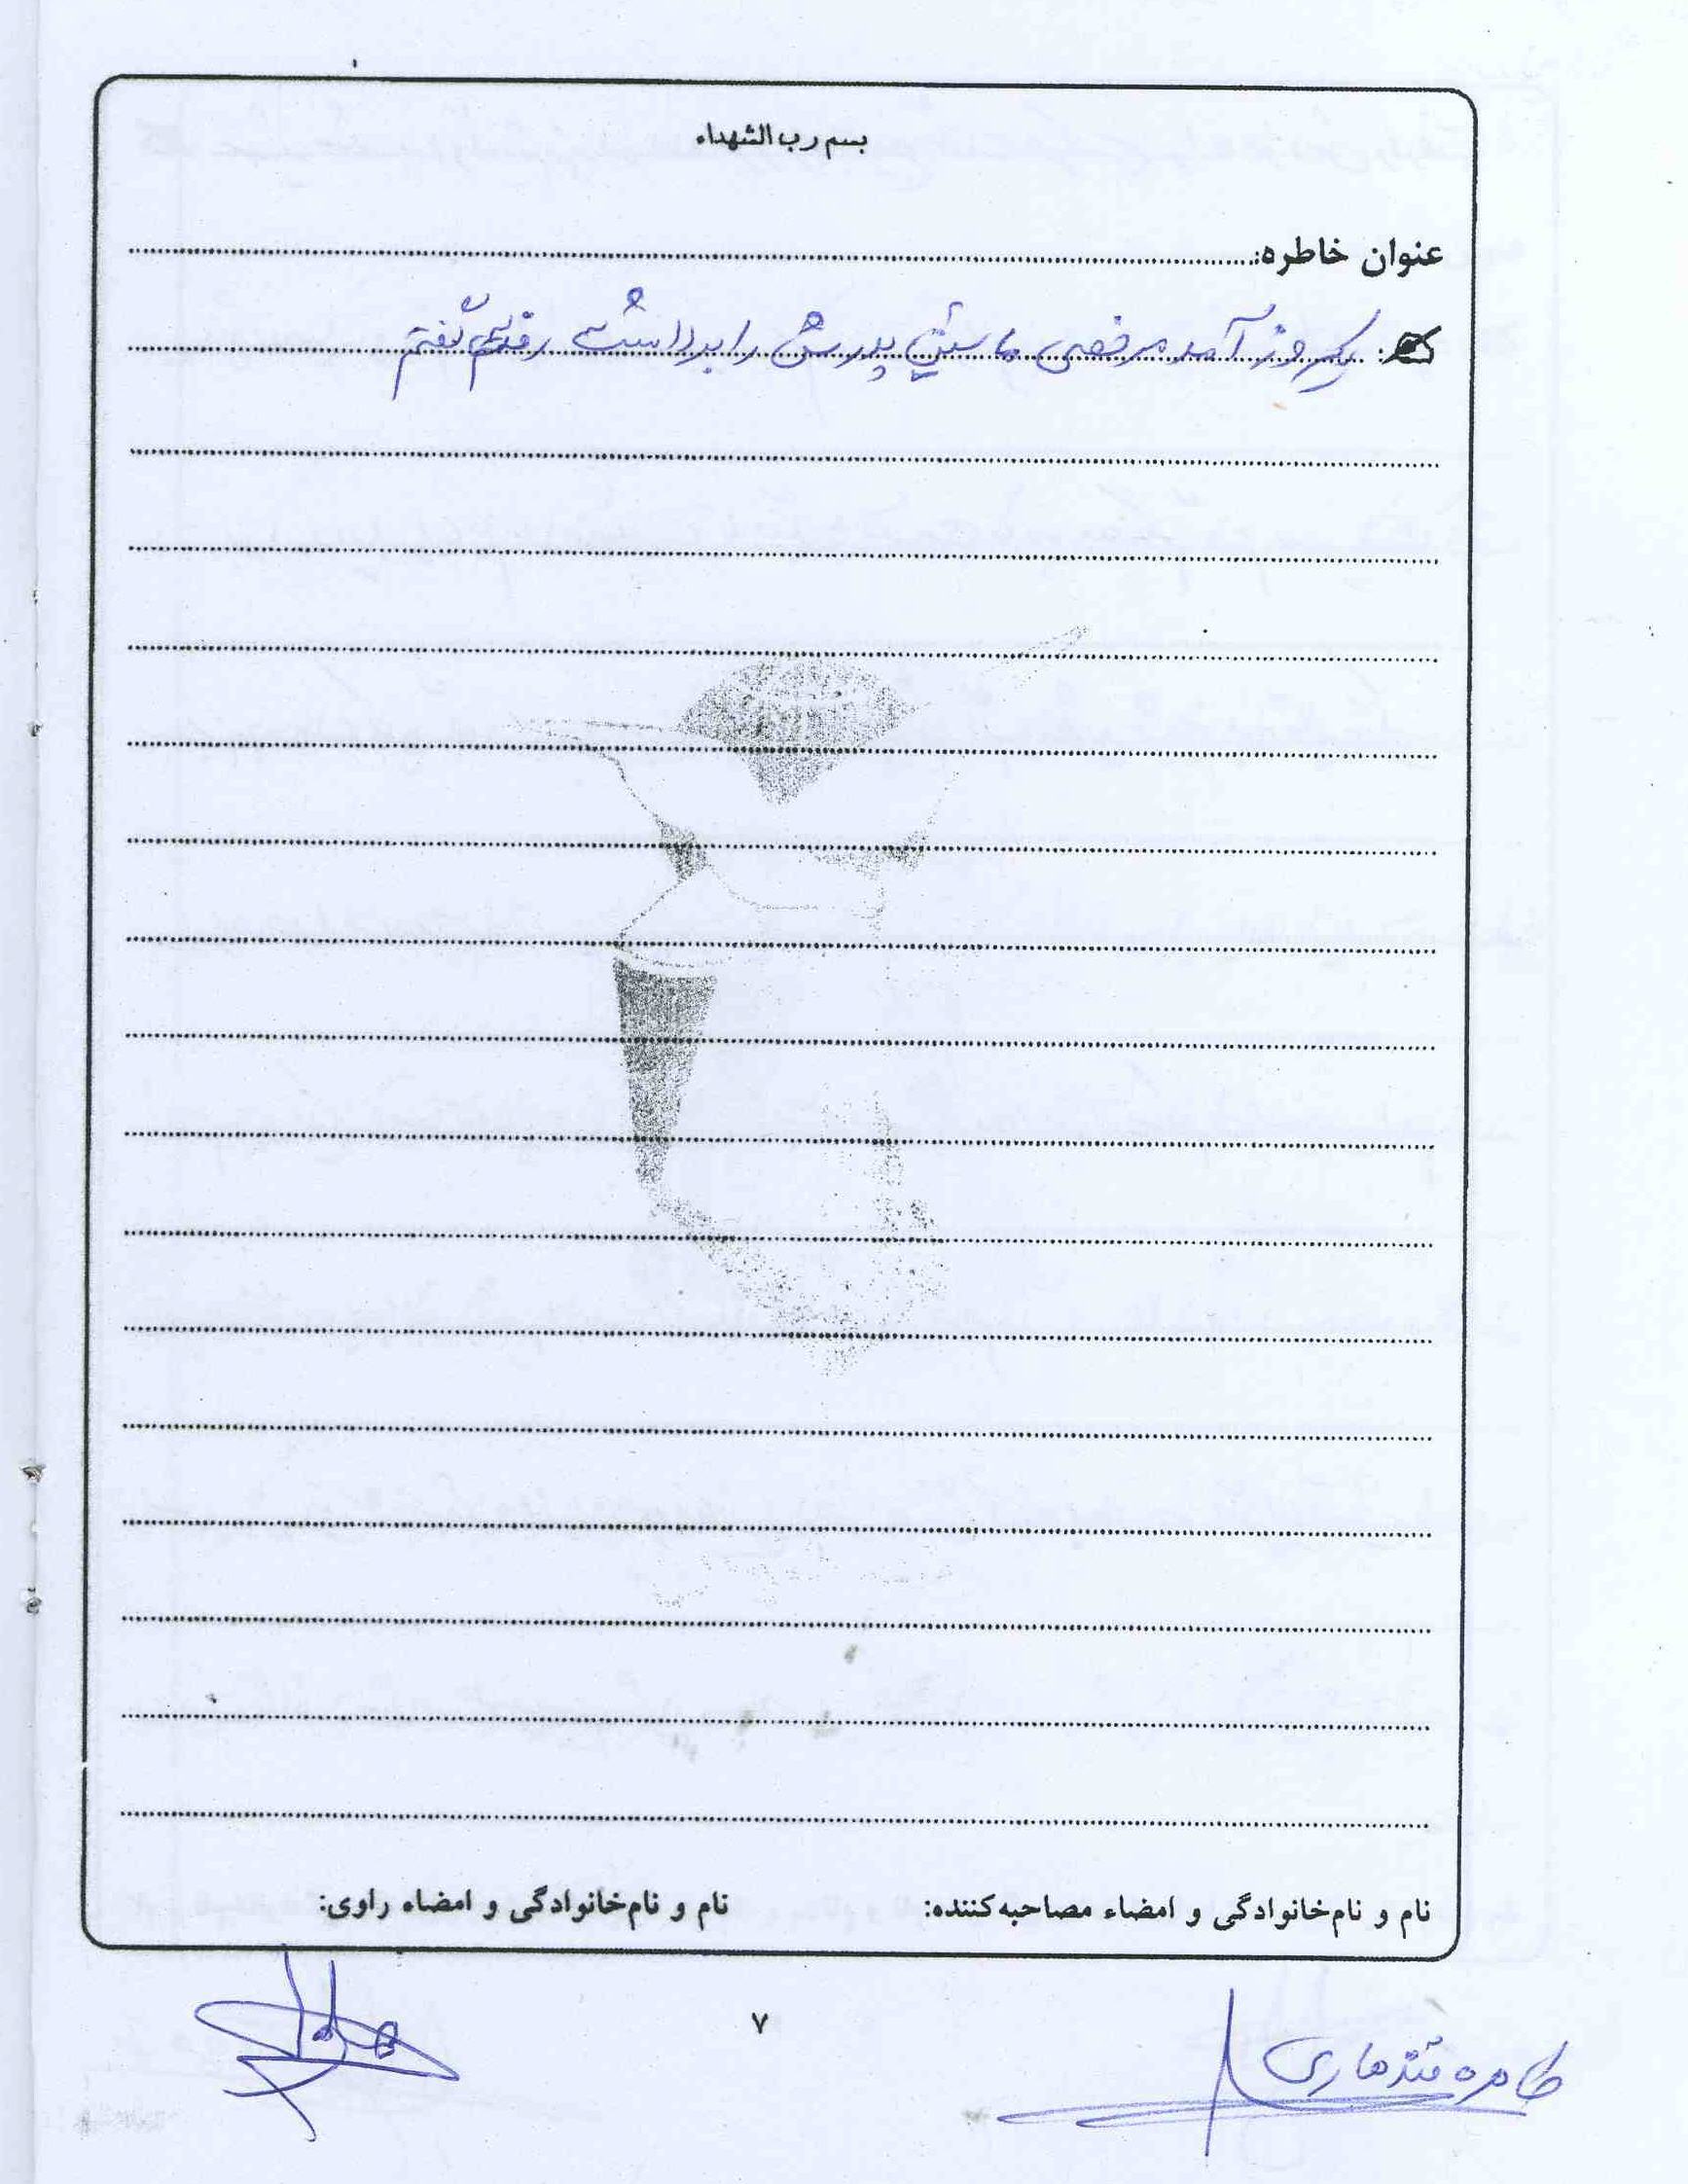 بسم رب الشهداء
عنوان خاطره:
یکروز آمد مرخصی ماشین پدرش را برداشت رفتیم گفتم
نام و نام‌خانوادگی و امضاء مصاحبه‌کننده:
نام و نام‌خانوادگی و امضاء راوی:
۷
طاهره قندهاری